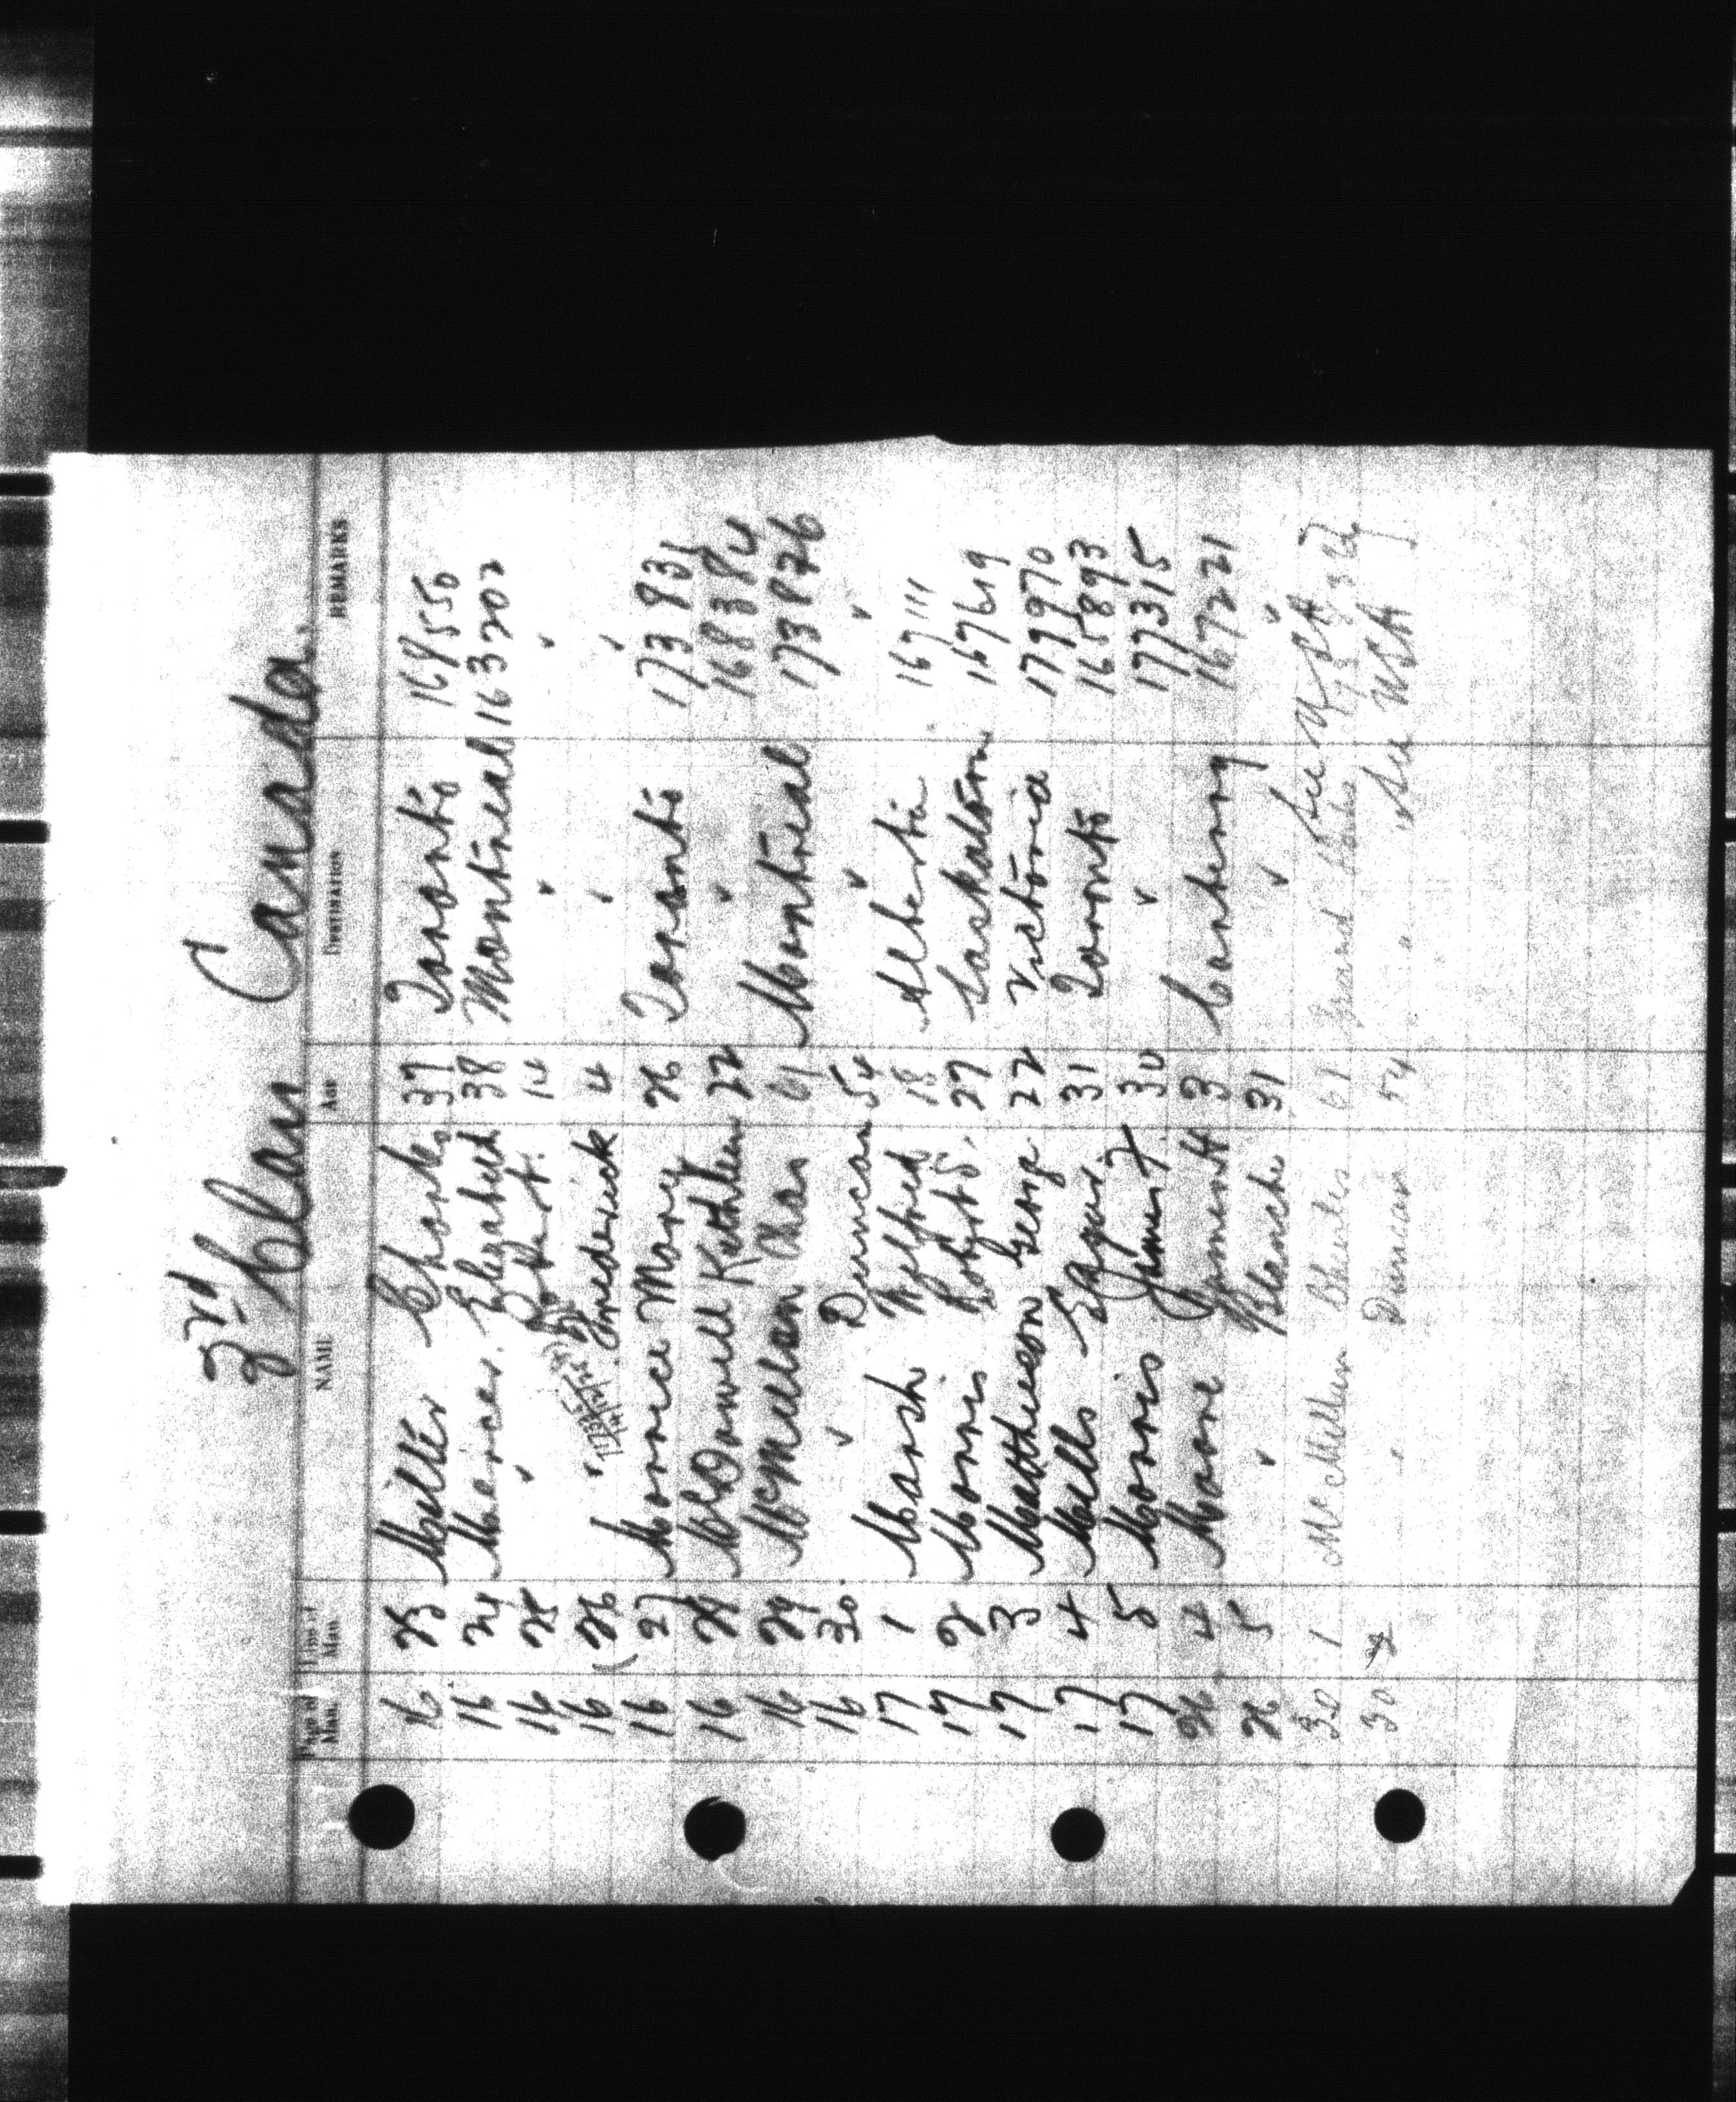 3rd Class Canada.
Page of Man. Line of Man. NAME AGE DESTINATION REMARKS
16 23 Miller Charles 37 Toronto 168550
16 24 Mercer, Elizabeth 38 Montreal 163202
16 25 " Robert. 14 " "
16 26 " Frederick 4 " "
16 27 Morrice Mary 26 Toronto 173831
16 McDowell Kathleen 22 " 168384
16 29 McMillan Chas 61 Montreal 173876
16 30 " Duncan 54 " "
17 1 Marsh Wilfred 18 Alberta 167111
17 2 Morris Robt S. 27 Saskatoon 167619
17 3 Mattheeson George 22 Victoria 179970
17 4 Mells Edgar. 31 Toronto 165893
17 5 Morris James F 30 " 177315
26 4 Moore 3 Carberry 167221
26 5 " Blanche 31 " "
30 1 McMillan Charles 61 Grand See USA
30 2 " Duncan 54 " " See USA